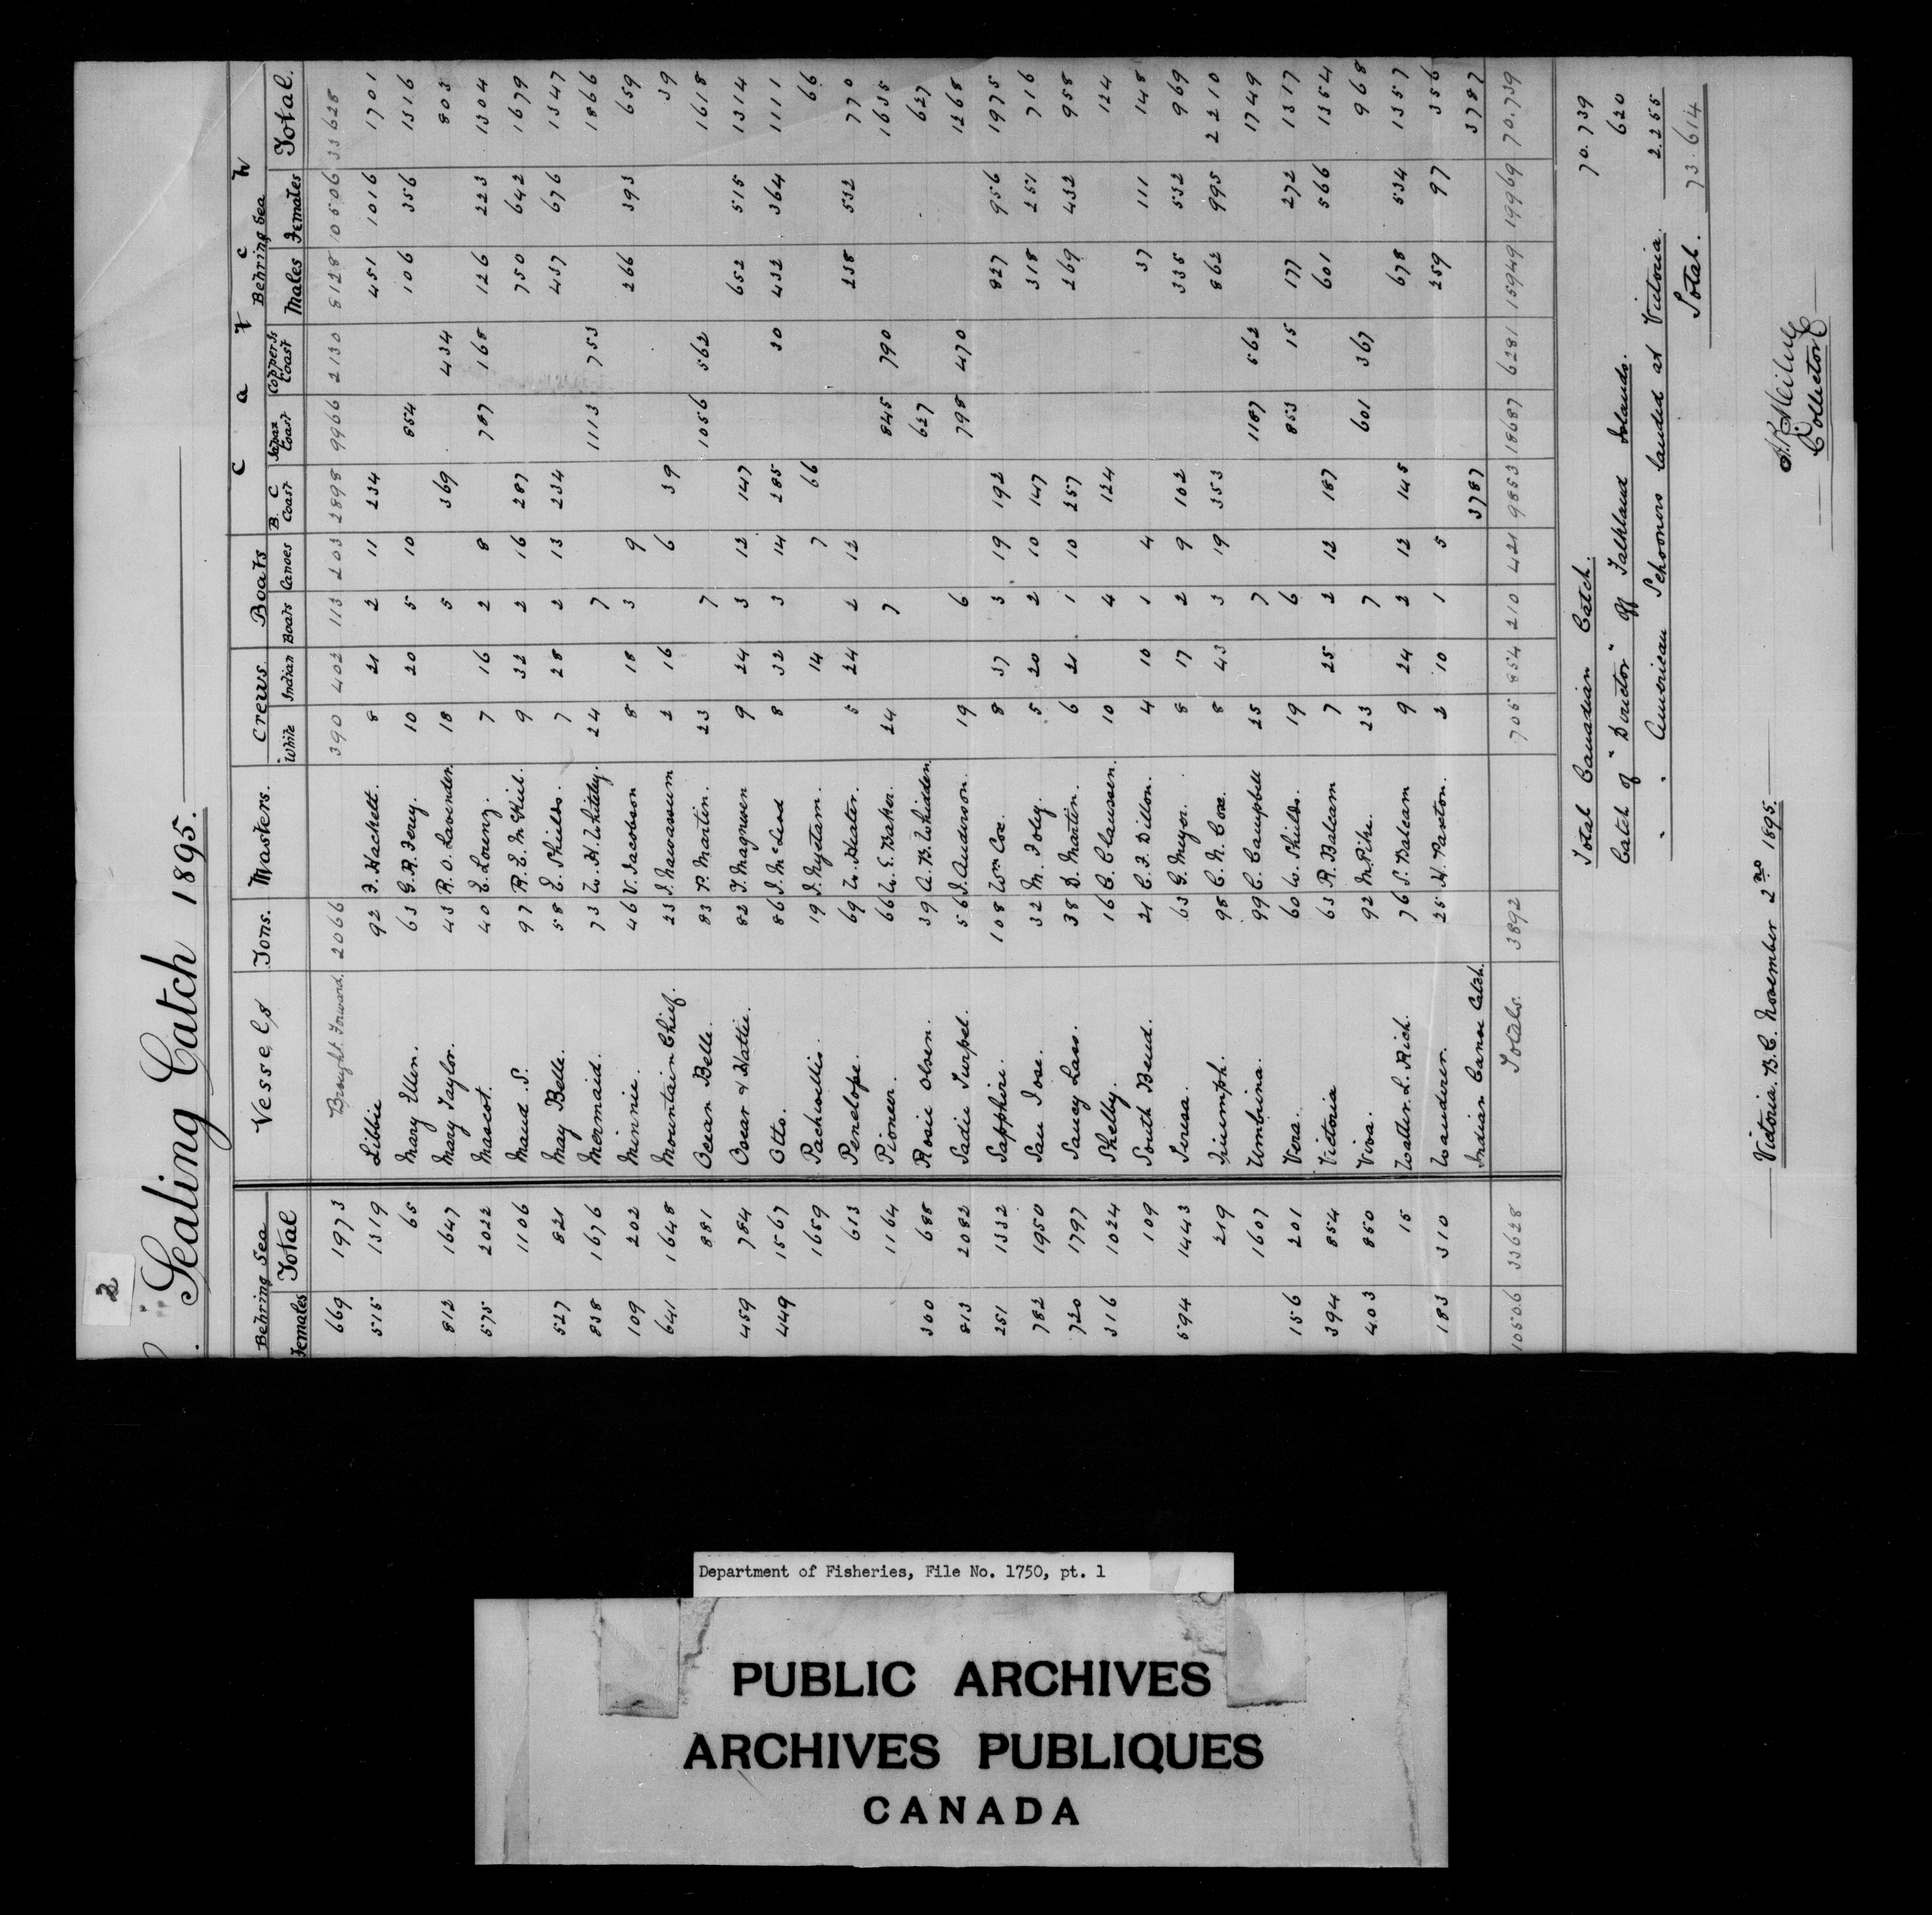 2
Sealing Catch 1895.
Behring Sea Vessels Tons. Masters. Crews Boats C a t c h
Females Total White Indian Boats Canoes B. C Coast Japan Coast Copper Is Coast Behring Sea Males Females Total.
669 1973 Brought Forward. 2066 390 402 113 203 2898 9966 2130 8128 10506 33628
515 1319 Libbie 92 F. Hackett. 8 21 2 11 234 451 1016 1701
65 Mary Ellen. 63 G. R. Ferey. 10 20 5 10 854 106 356 1316
812 1647 Mary Taylor. 43 R. O. Lavender. 18 5 369 434 803
575 2022 Mascot. 40 E. Lorenz. 7 16 2 8 787 168 126 223 1304
1106 Maud. S. 97 R. E. McKiel. 9 32 2 16 287 750 642 1679
527 821 May Belle. 58 E. Shields. 7 28 2 13 234 437 676 1347
838 1676 Mermaid. 73 W. H. Whitely. 24 7 1113 753 1866
109 202 Minnie. 46 V. Jacobson 8 18 3 9 266 393 659
641 1648 Mountain Chief. 23 J. Nawassum 2 16 6 39 39
881 Ocean Belle. 83 P. Martin. 23 7 1056 562 1618
459 784 Oscar & Hattie. 82 T. Magnusen 9 24 3 12 147 652 515 1314
449 1567 Otto. 86 J. McLeod 8 32 3 14 285 30 432 364 1111
1659 Pachwillis. 19 J. Nyetam. 14 7 66 66
613 Penelope. 69 W. Heater. 5 24 2 12 238 532 770
1164 Pioneer. 66 W. E. Baker. 24 7 845 790 1635
300 688 Rosie Olsen. 39 A. B. Whidden 627 627
813 2082 Sadie Turpel. 56 J. Anderson. 19 6 798 470 1268
251 1332 Sapphire. 108 Wm Cox. 8 37 3 19 192 827 956 1975
782 1950 San Jose. 32 M. Foley. 5 20 2 10 147 318 251 716
720 1797 Saucy Lass. 38 D. Martin. 6 21 1 10 257 269 432 958
316 1024 Shelby. 16 C. Claussen. 10 4 124 124
109 South Bend. 21 C. F. Dillon. 4 10 1 4 37 111 148
594 1443 Teresa. 63 G. Meyer. 8 17 2 9 102 335 532 969
219 Triumph. 98 C. N. Cox. 8 43 3 19 353 862 995 2210
1607 Umbrina. 99 C. Campbell 25 7 1187 562 1749
156 201 Vera. 60 W. Shields. 19 6 853 15 177 272 1317
394 854 Victoria 63 R. Balcam 7 25 2 12 187 601 566 1354
403 850 Viva. 92 M. Pike. 23 7 601 367 968
15 Walter. L. Rich. 76 S. Balcam 9 24 2 12 145 678 534 1357
183 310 Wanderer. 25 H. Paxton. 2 10 1 5 259 97 356
Indian Canoe Catch. 3787 3787
10506 33628 Totals. 3892 705 854 210 421 9853 18687 6281 15949 19969 70.739
Total Canadian Catch. 70.739
Catch of "Director" off Falkland Islands. 620
" " American Schooners landed at Victoria. 2.255
Total. 73.614
Victoria. B.C. November 2nd 1895.
A. R. Milne
Collector
Department of Fisheries, File No. 1750, pt. 1
PUBLIC ARCHIVES
ARCHIVES PUBLIQUES
CANADA